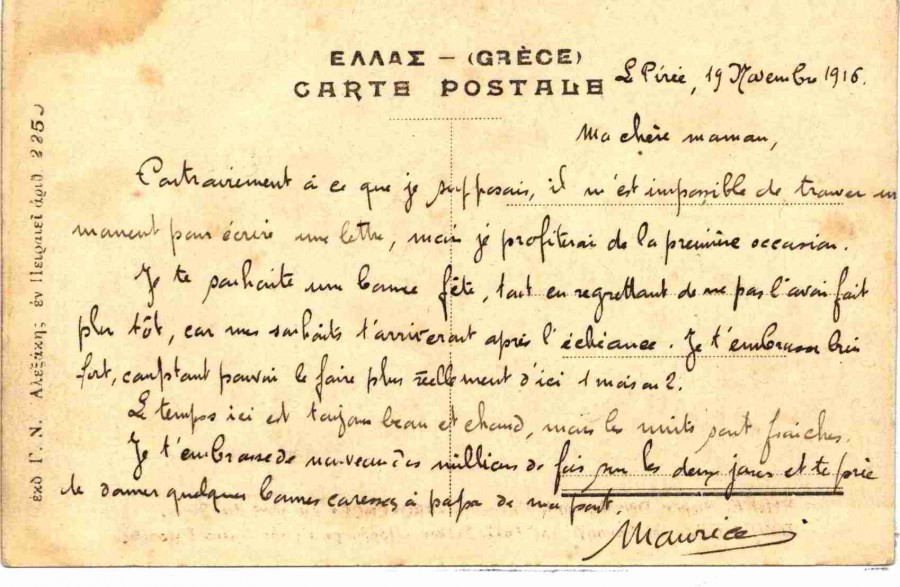 ΕΛΛΑΣ – (GRÈCE)
CARTE POSTALE
Le Pirée, 19 Novembre 1916.
Ma chère maman,
Contrairement à ce que je supposais, il m'est impossible de trouver un
moment pour écrire une lettre, mais je profiterai de la première occasion.
Je te souhaite une bonne fête, tout en regrettant de ne pas l'avoir fait
plus tôt, car mes souhaits t'arriveront après l'échéance. Je t'embrasse bien
fort, comptant pouvoir le faire plus réellement d'ici 1 mois ou 2.
Le temps ici est toujours beau et chaud, mais les nuits sont fraîches.
Je t'embrasse de nouveau des millions de fois sur les deux joues et te prie
de donner quelques bonnes caresses à papa de ma part.
Maurice
ἐκδ Γ. Ν. Ἀλεξάκης ἐν Πειραιεῖ ἀριθ